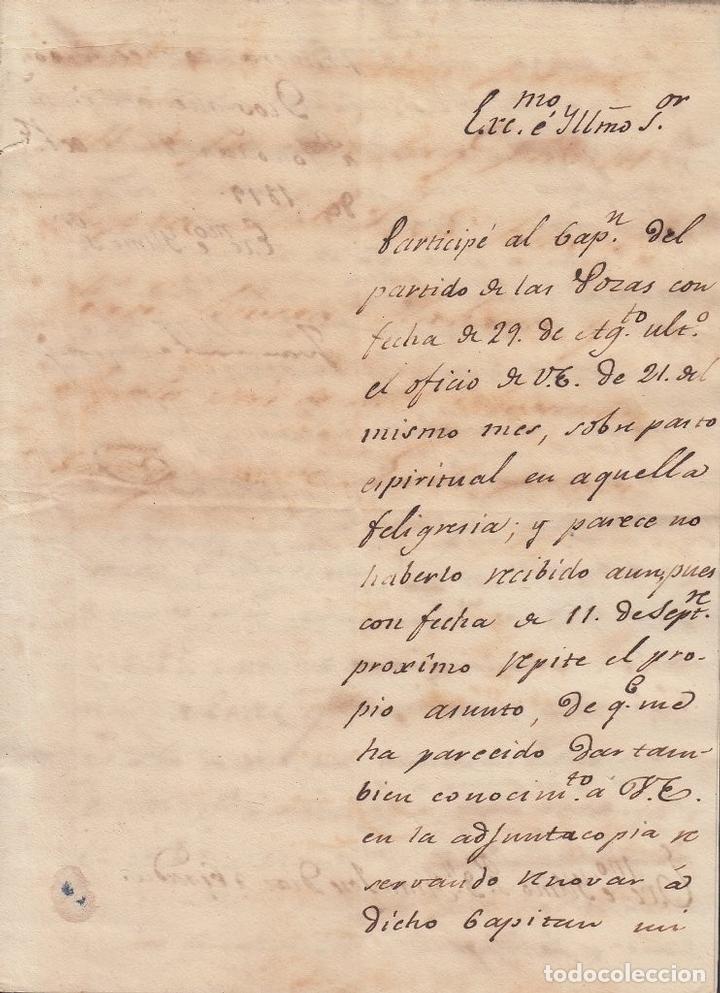 Exc.mo é Yllmo S.or
Participé al Cap.n del
partido de las Pozas con
fecha de 29. de Ag.to ult.o
el oficio de V.E. de 21. del
mismo mes, sobre pasto
espiritual en aquella
feligresia; y parece no
haberlo recibido aun, pues
con fecha de 11. de Sept.re
proxîmo repite el pro-
pio asunto, de q.e me
ha parecido dar tam-
bien conocim.to á V.E.
en la adjunta copia re
servando renovar á
dicho Capitan mi
todocoleccion